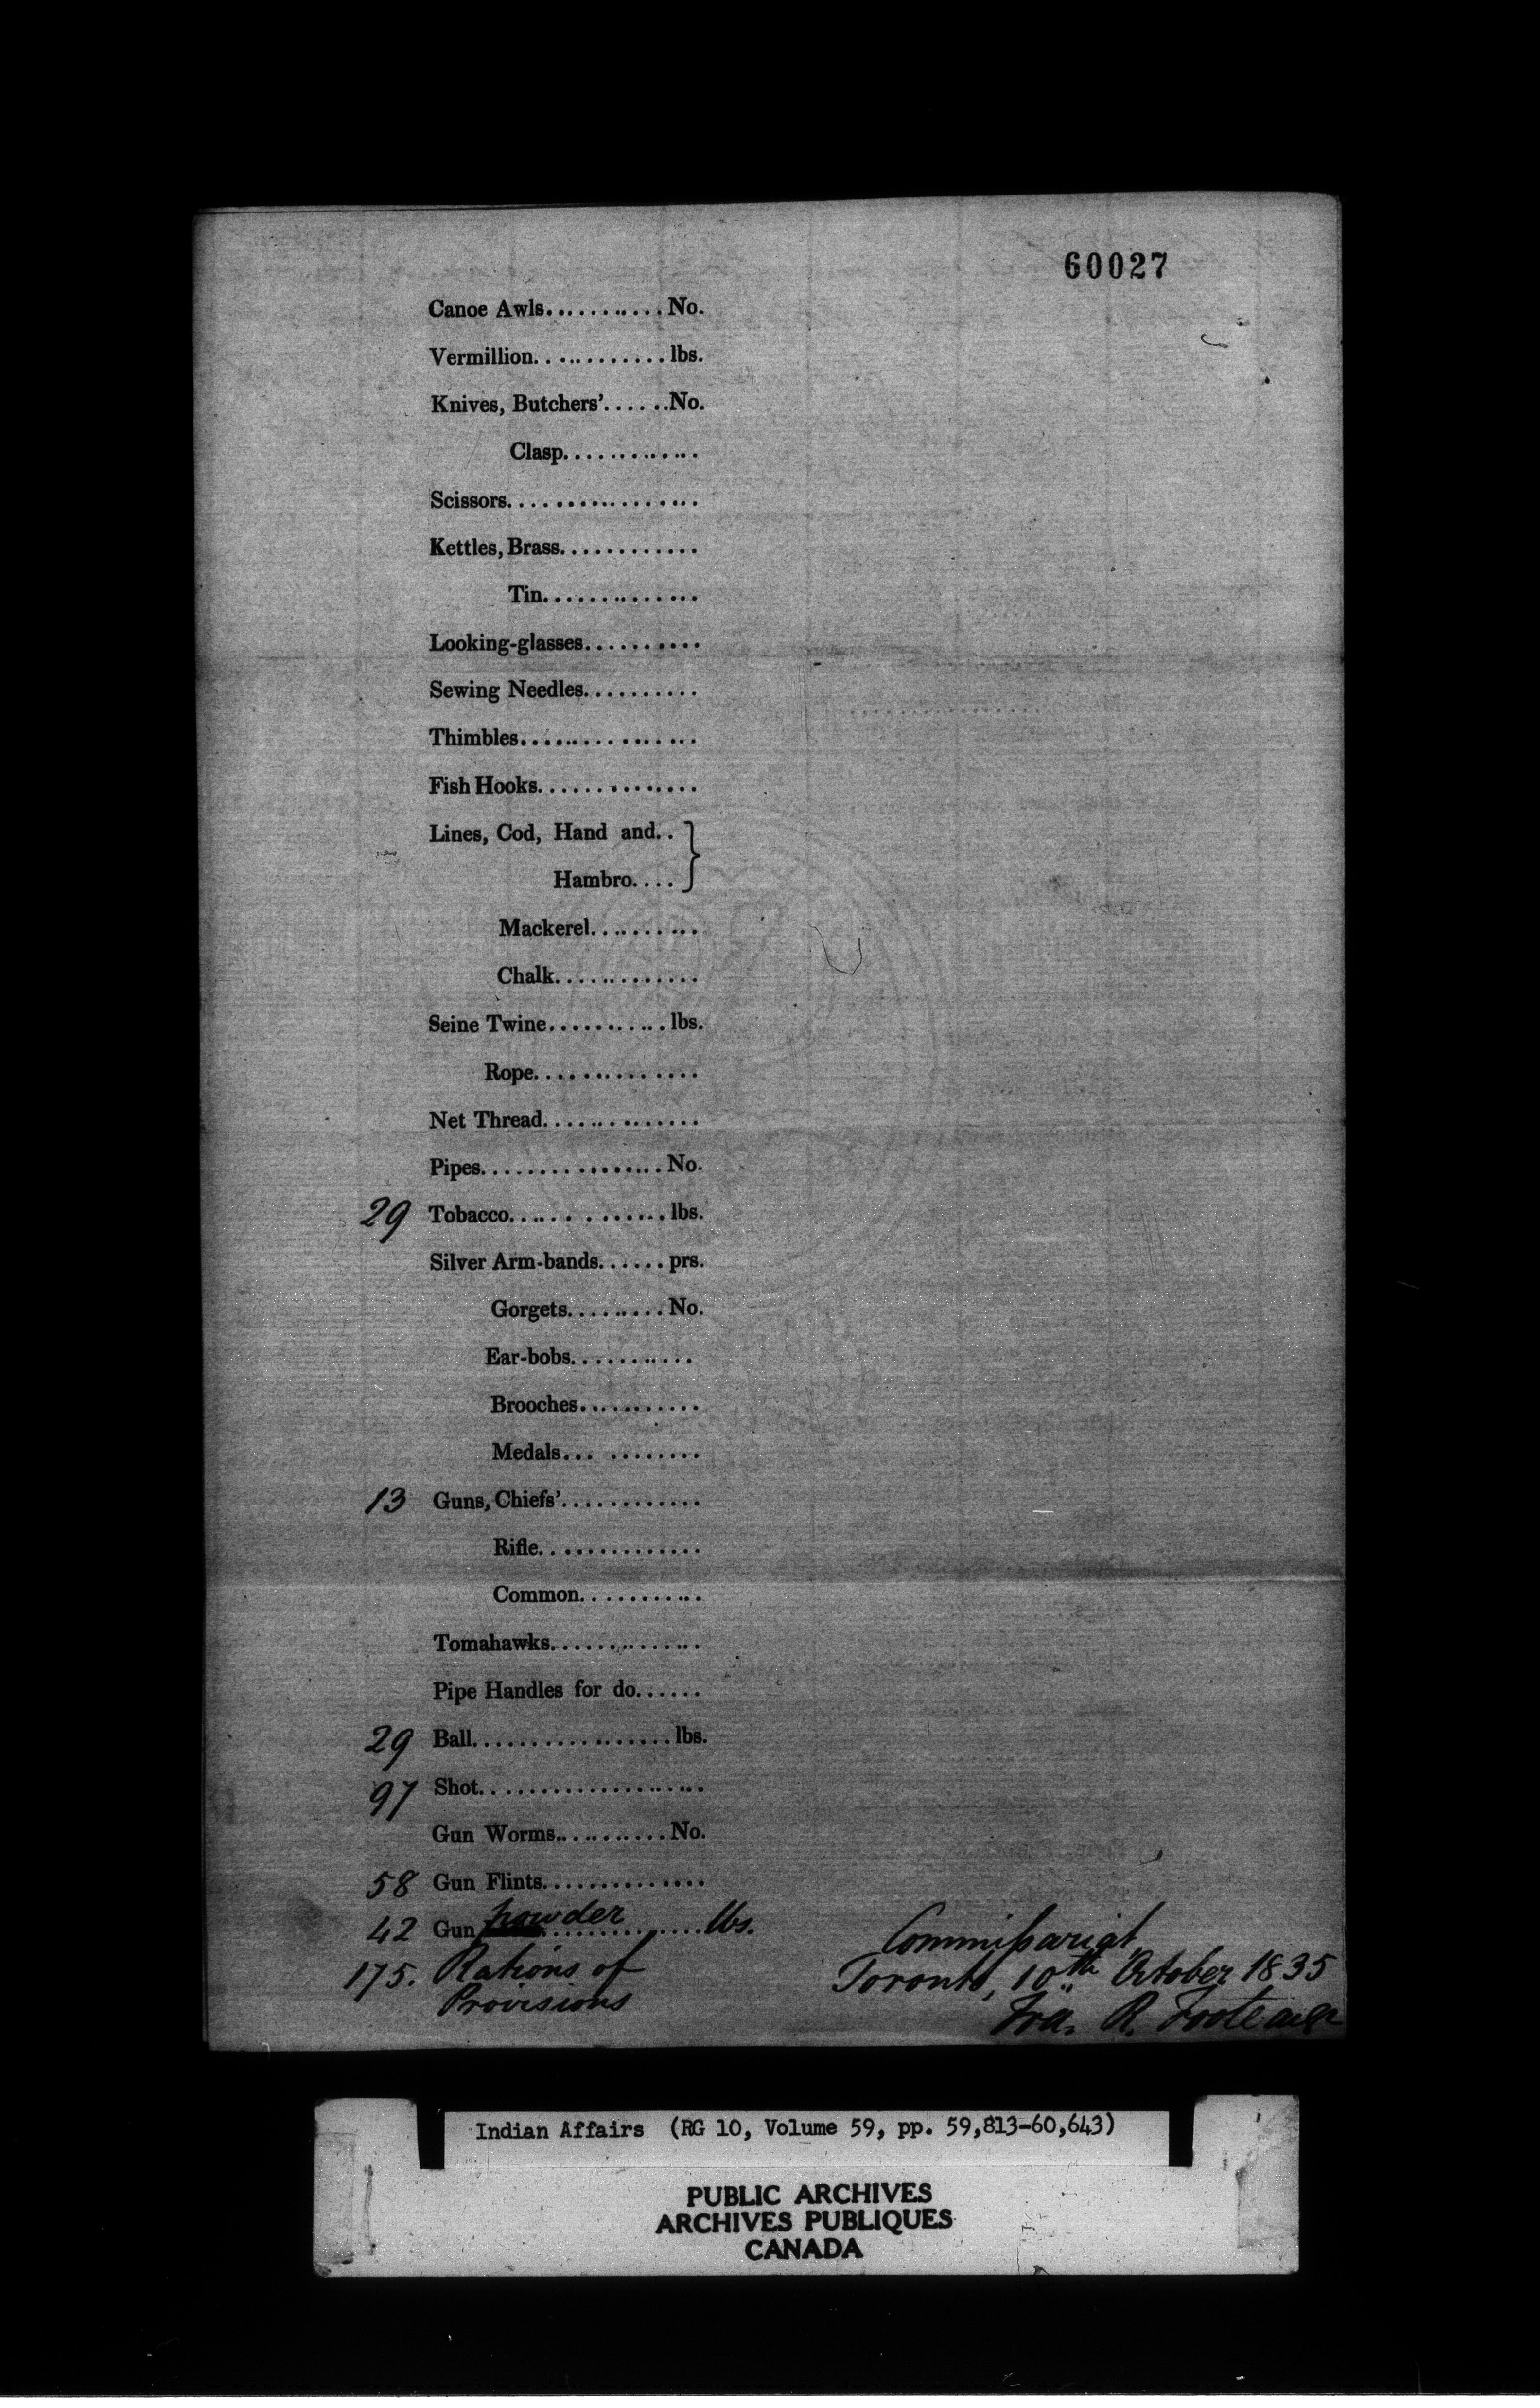 60027
Canoe Awls...........No.
Vermillion............lbs.
Knives, Butchers'......No.
Clasp............
Scissors.................
Kettles, Brass............
Tin.............
Looking-glasses..........
Sewing Needles..........
Thimbles................
Fish Hooks..............
Lines, Cod, Hand and.. }
Hambro....
Mackerel..........
Chalk.............
Seine Twine...........lbs.
Rope..............
Net Thread..............
Pipes................No.
29 Tobacco..............lbs.
Silver Arm-bands......prs.
Gorgets.........No.
Ear-bobs...........
Brooches...........
Medals... ........
13 Guns, Chiefs'............
Rifle..............
Common...........
Tomahawks..............
Pipe Handles for do......
29 Ball..................lbs.
97 Shot....................
Gun Worms...........No.
58 Gun Flints..............
42 Gun powder..............lbs.
175. Rations of
Provisions
Commissariat
Toronto, 10th October 1835
Fra. R. Foote
Indian Affairs (RG 10, Volume 59, pp. 59,813-60,643)
PUBLIC ARCHIVES
ARCHIVES PUBLIQUES
CANADA